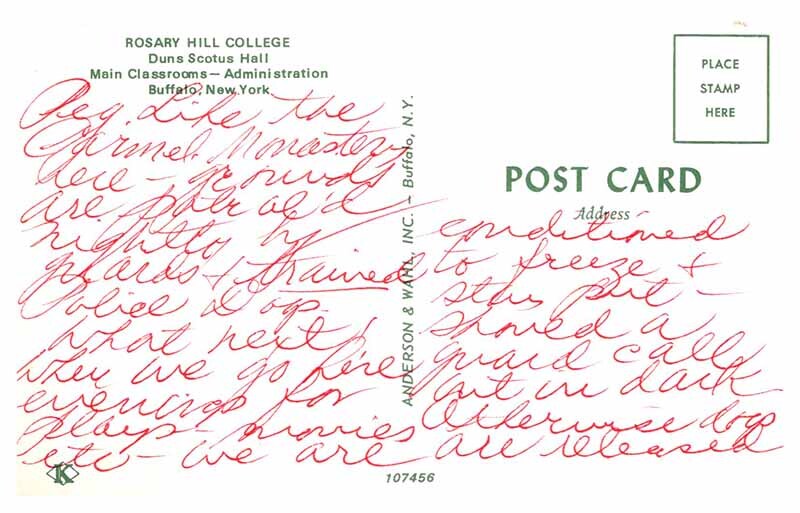 ROSARY HILL COLLEGE
Duns Scotus Hall
Main Classrooms — Administration
Buffalo, New York
Peg. Like the
Carmel. Monastery
here - grounds
are patrol'd
nightly by
guards & trained
Police Dogs.
What next!
When we go here
evenings for
plays - movies
etc - we are
ANDERSON & WAHL, INC. — Buffalo, N.Y.
PLACE
STAMP
HERE
POST CARD
Address
conditioned
to freeze &
stay put -
should a
guard call
out in dark
Otherwise dogs
are released
K
107456